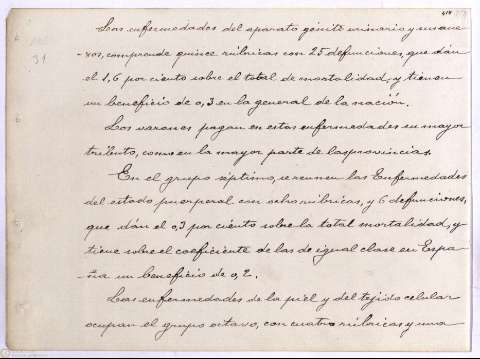 414
31
Las enfermedades del aparato génito urinario y sus ane-
-xos, comprende quince rúbricas con 25 defunciones, que dán
el 1,6 por ciento sobre el total de mortalidad, y tienen
un beneficio de 0,3 en la general de la nación.
Los varones pagan en estas enfermedades su mayor
tributo, como en la mayor parte de las provincias.
En el grupo séptimo, se reunen las Enfermedades
del estado puerperal con ocho rúbricas, y 6 defunciones,
que dán el 0,3 por ciento sobre la total mortalidad, y
tiene sobre el coeficiente de las de igual clase en Espa-
-ña un beneficio de 0,2.
Las enfermedades de la piel y del tejido celular
ocupan el grupo octavo, con cuatro rúbricas y una